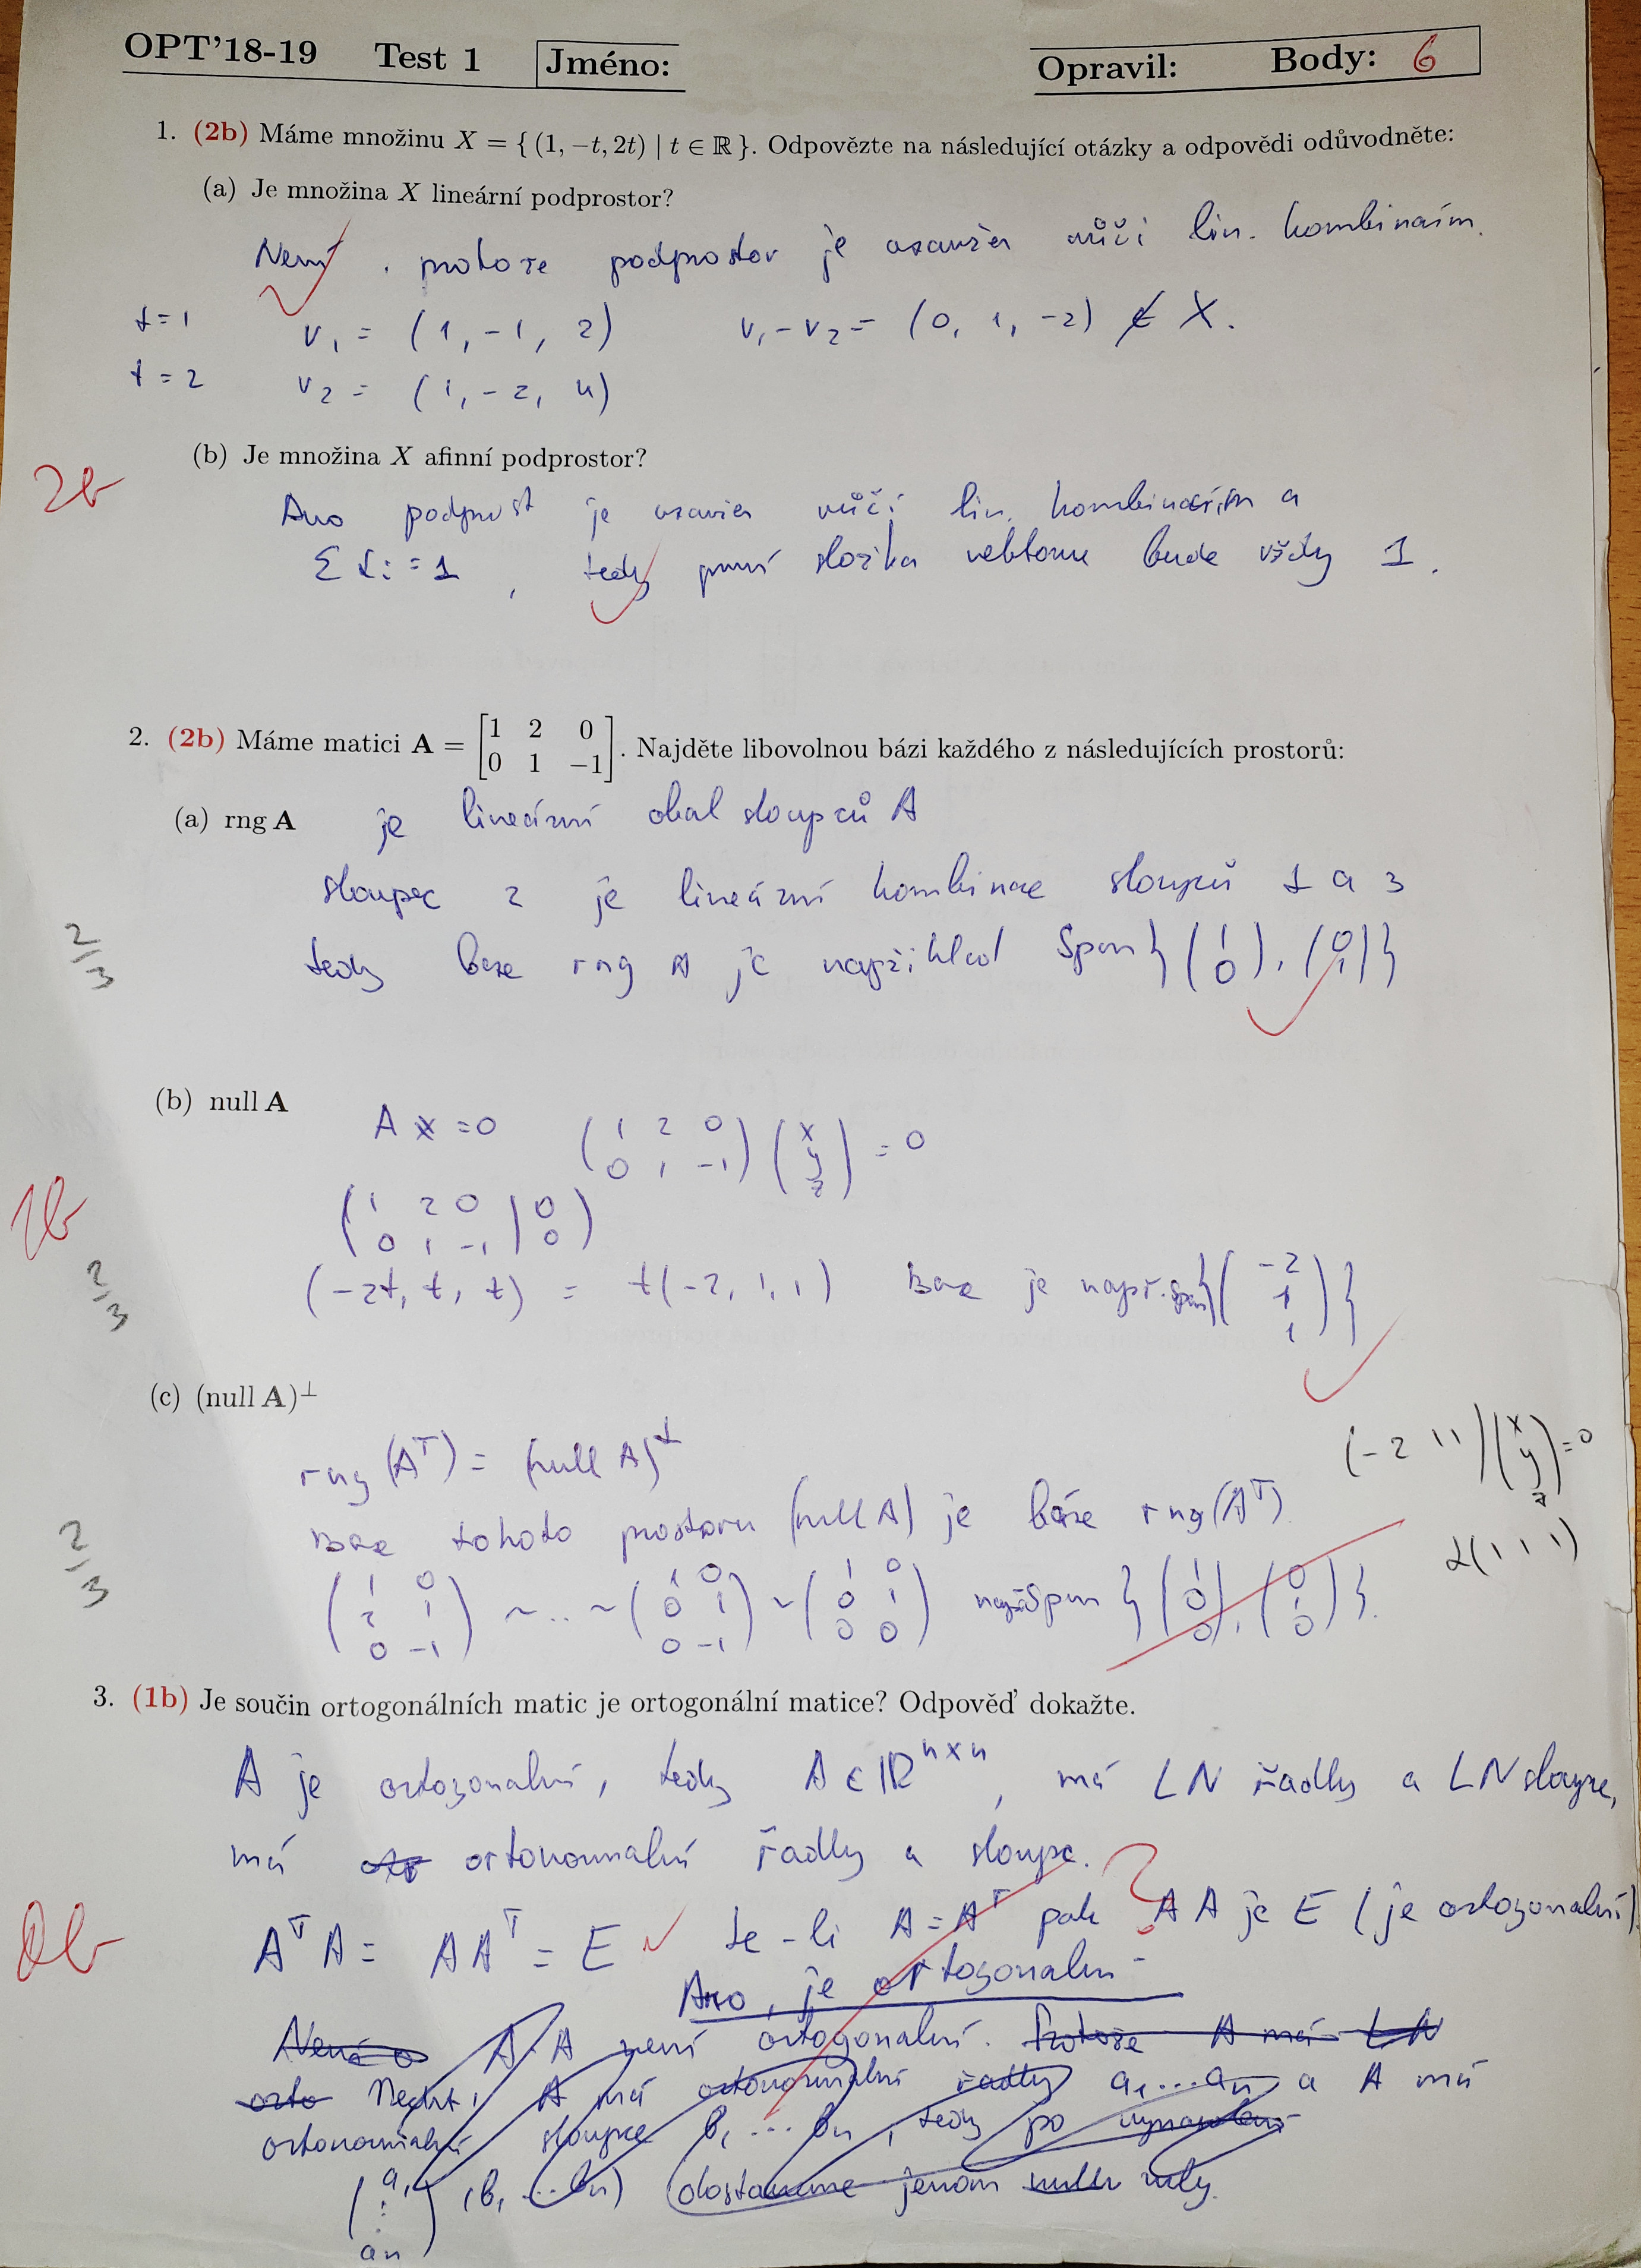 OPT'18-19 Test 1 Jméno: Opravil: Body: 6
1. (2b) Máme množinu X = { (1, −t, 2t) | t ∈ ℝ }. Odpovězte na následující otázky a odpovědi odůvodněte:
(a) Je množina X lineární podprostor?
Není, protože podprostor je uzavřen vůči lin. kombinacím.
t=1 v₁ = (1, -1, 2) v₁-v₂ = (0, 1, -2) ∉ X.
t=2 v₂ = (1, -2, 4)
(b) Je množina X afinní podprostor?
2b
Ano podprost je uzavřen vůči lin. kombinacím a
Σαi = 1, tedy první složka vektoru bude vždy 1.
2. (2b) Máme matici A = [1 2 0; 0 1 −1]. Najděte libovolnou bázi každého z následujících prostorů:
(a) rng A je lineární obal sloupců A
sloupec 2 je lineární kombinace sloupců 1 a 3
2/3
tedy baze rng A je například Span{(1 0), (0 1)}
(b) null A
Ax = 0 (1 2 0; 0 1 -1)(x y z) = 0
1b
(1 2 0 | 0; 0 1 -1 | 0)
2/3
(-2t, t, t) = t(-2, 1, 1) Baze je např. span{(-2 1 1)}
(c) (null A)⊥
rng(Aᵀ) = (null A)⊥ (-2 1 1)(x y z) = 0
Baze tohoto prostoru (null A) je báze rng(Aᵀ).
α(1 1 1)
2/3
(1 0; 2 1; 0 -1) ~ .. ~ (1 0; 0 1; 0 -1) ~ (1 0; 0 1; 0 0) Span {(1 0 0), (0 1 0)}.
3. (1b) Je součin ortogonálních matic je ortogonální matice? Odpověď dokažte.
A je ortogonální, tedy A ∈ ℝⁿˣⁿ, má LN řádky a LN sloupce,
má ortonormální řádky a sloupce. ?
0b
AᵀA = AAᵀ = E Je-li A = Aᵀ pak AA je E (je ortogonální)
Ano, je ortogonální
A·A není ortogonální. Protože A má LN
orto Nechť A má ortonormální řádky a₁...aₙ a A má
ortonormální sloupce b₁, ... bₙ, tedy po
(a₁ ⋮ aₙ) (b₁ ... bₙ) dostaneme jenom nuly.